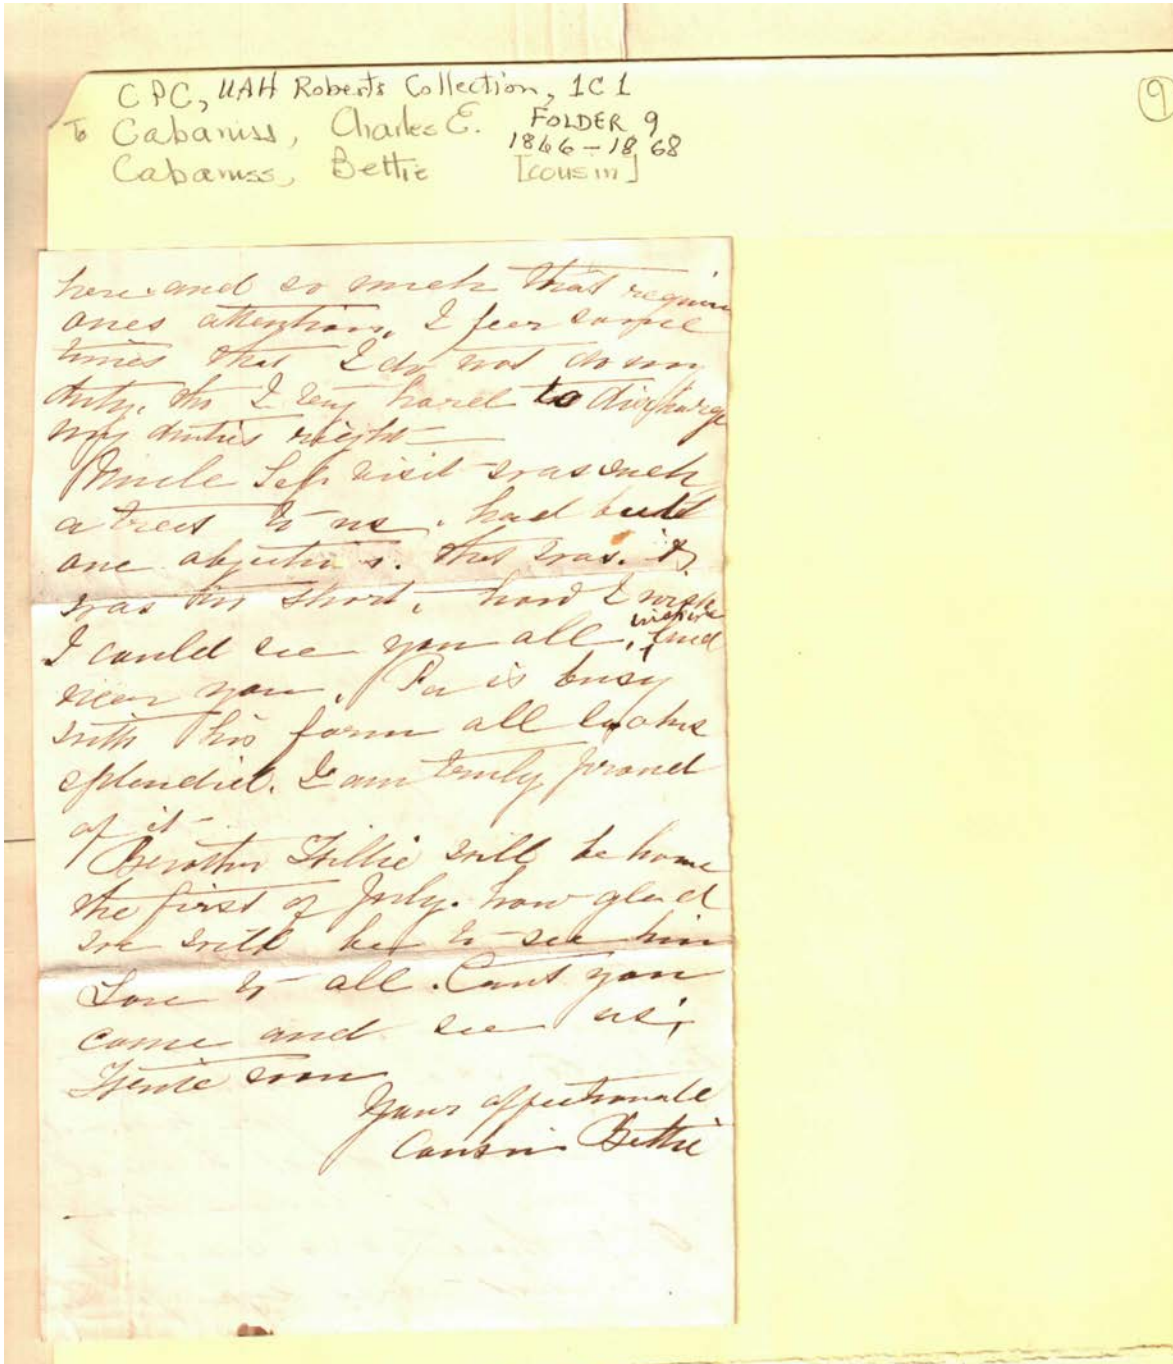 CPC, UAH Roberts Collection, 1C1
9
To Cabaniss, Charles E. FOLDER 9
1866-1868
Cabaniss, Bettie [cousin]
here and so much that requires
ones attention, I feer some
times that I do not do my
duty, tho I try hard to discharge
my duties right
Uncle Sep visit was such
a treet to us. had but
one objection. that was. it
was too short, how I wish
I could see you all,
near you. Pa is busy
with his farm all looks
splendid. I am truly proud
of it
Brother Willie will be home
the first of July. how glad
we will be to see him
Love to all. Cant you
come and see us,
Write soon
Your affectionate
Cousin Bettie